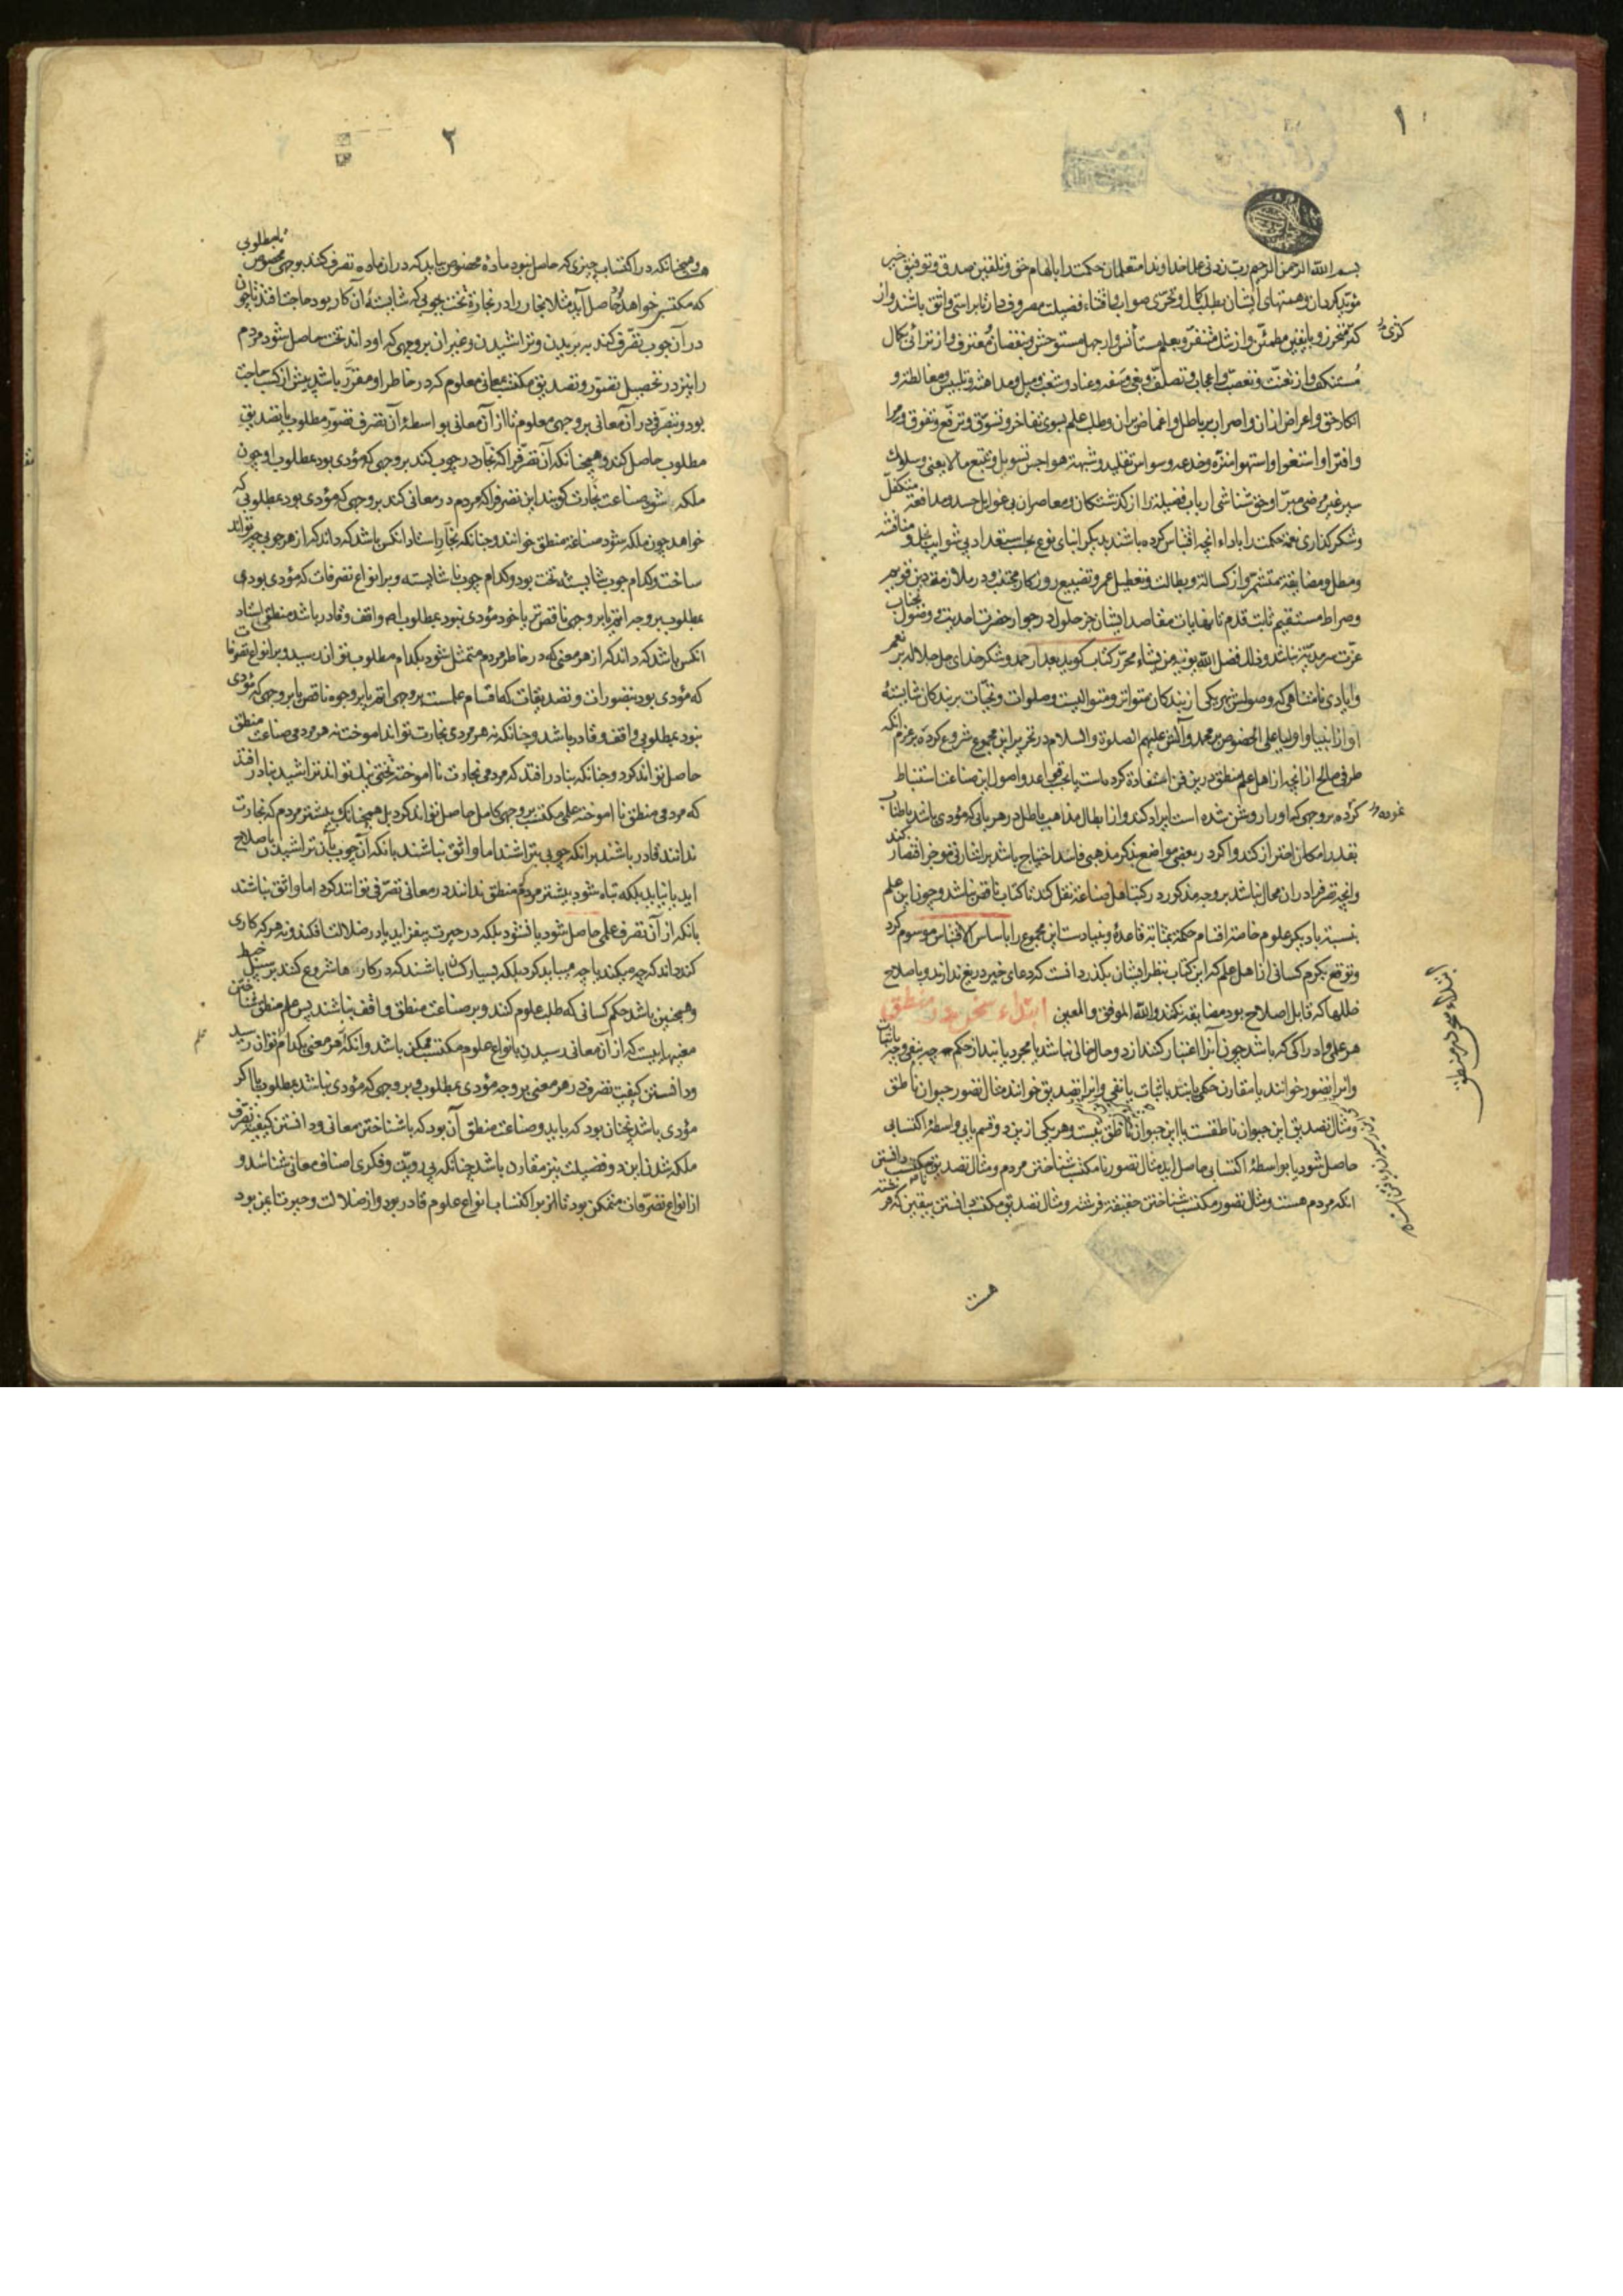 ١
بسم الله الرحمن الرحیم رب زدنی علما خداوندا متعلمان حکمت را بالهام حق و تلقین صدق و توفیق خیر
مؤید گردان و همتهای ایشان بطلب کمال و تحری صواب و اقتناء فضیلت مصروف دار تا براستی واثق باشند و از
کژی متحرز و بیقین مطمئن و از شک متنفر و بعلم مستأنس و از جهل مستوحش و بنقصان معترف و از ترائی بکمال
مستنکف و از تعنت و تعصب و اعجاب و تصلف و بغی و سفه و عناد و شغب و میل و مداهنه و تلبیس و مغالطه و
انکار حق و اعراض از ان و اصرار بر باطل و اغماض بر ان و طلب علم بسوی تفاخر و تسوق و ترفع و تفوق و مرا
و افترا و استغوا و استهوا منزه و خدعه و وسواس تقلید و شبهت هواجس تسویل و تتبع ما لا یعنی و سلوک
سیر غیر مرضی مبرا و حق شناسی ارباب فضیلت را از گذشتگان و معاصران بی غوایل حسد و مدافعت متکفل
و شکر گذاری نعمت حکمت را باداء انچه اقتباس کرده باشند بدیگر ابنای نوع بحسب استعداد بی شوایب بخل و منافسه
و مطل و مضایقه متشمر و از کسالت و بطالت و تعطیل عمر و تضییع روزگار مجتنب و در ملازمت دین قویم
و صراط مستقیم ثابت قدم تا نهایات مقاصد ایشان جز حلول در جوار حضرت احدیت و وصول بجناب
عزت سرمدیت نباشد و ذلک فضل الله یؤتیه من یشاء محرر کتاب گوید بعد از حمد و شکر خدای جل جلاله بر نعم
و ایادی نامتناهی که وصولش بهر یکی از بندگان متواتر و متوالیست و صلوات و تحیات بر بندگان شایستهٔ
او از انبیا و اولیا علی الخصوص بر محمد و آلش علیهم الصلوة و السلام در تحریر این مجموع شروع کرده بر عزم آنکه
طرفی صالح از انچه از اهل علم منطق درین فن استفادت کرده است یا بحقیق قواعد و اصول این صناعت استنباط
کرده بر وجهی که او را روشن شده است ایراد کند و از ابطال مذاهب باطل در هر بابی که مؤدی باشد باطناب
بقدر امکان احتراز کند و اگر در بعضی مواضع بذکر مذهبی فاسد احتیاج باشد بر اشارتی موجز اقتصار کند
و انچه تصرف را در ان مجال نباشد بر وجه مذکور در کتب اهل صناعت نقل کند تا کتاب ناقص نباشد و چون این علم
بنسبت با دیگر علوم خاصه اقسام حکمت بمثابت قاعده و بنیادست این مجموع را باساس الاقتباس موسوم کرد
و توقع بکرم کسانی از اهل علم که این کتاب بنظر ایشان بگذرد آنست که دعای خیر دریغ ندارند و باصلاح
خللها که قابل اصلاح بود مضایقه نکنند و الله الموفق و المعین ابتداء سخن در منطق
هر علم و ادراکی که باشد چون آنرا اعتبار کنند از دو حال خالی نباشد یا مجرد یابند از حکم چه بنفی و چه باثبات
و انرا تصور خوانند یا مقارن حکمی یابند باثبات یا نفی و انرا تصدیق خوانند مثال تصور حیوان ناطق
و مثال تصدیق این حیوان ناطقست یا این حیوان ناطق نیست و هر یکی ازین دو قسم یا بی واسطهٔ اکتسابی
حاصل شود یا بواسطهٔ اکتسابی حاصل اید مثال تصور نامکتسب شناختن مردم و مثال تصدیق نامکتسب دانستن
انکه مردم هست و مثال تصور مکتسب شناختن حقیقت فرشته و مثال تصدیق مکتسب دانستن بیقین که فرشته
هست
کژی
نموده
ابتداء سخن در منطق
٢
و همچنانکه در اکتساب چیزی که حاصل نبود مادهٔ مخصوص بباید که در ان ماده تصرف کنند بوجهی مخصوص تا مطلوبی
که مکتسب خواهد بود حاصل آید مثلا نجار را در نجارت تخت بچوبی که شایستهٔ آن کار بود حاجت افتد تا چون
در آن چوب تصرف کند به بریدن و تراشیدن و غیر ان بر وجهی که او داند تخت حاصل شود مردم
را نیز در تحصیل تصور و تصدیق مکتسب بمعانی معلوم که در خاطر او مقرر باشد پیش از کسب حاجت
بود و بتصرفی در آن معانی بر وجهی معلوم تا از آن معانی بواسطهٔ آن تصرف تصور مطلوب یا تصدیق
مطلوب حاصل کند و همچنانکه آن تصرف را که نجار در چوب کند بر وجهی که مؤدی بود بمطلوب او چون
ملکه شود صناعت نجارت گویند این تصرف را که مردم در معانی کند بر وجهی که مؤدی بود بمطلوبی که
خواهد چون ملکه شود صناعت منطق خوانند و چنانکه نجار استاد انکس باشد که داند که از هر چوبی چه تواند
ساخت و کدام چوب شایستهٔ تخت بود و کدام چوب ناشایسته و بر انواع تصرفات که مؤدی بود
بمطلوب بر وجه اتم یا بر وجهی ناقص تر یا خود مؤدی نبود بمطلوب اصلا واقف و قادر باشد منطقی استاد
انکس باشد که داند که از هر معنی که در خاطر مردم متمثل شود بکدام مطلوب توان رسید و بر انواع تصرفات
که مؤدی بود بتصورات و تصدیقات که اقسام علمست بر وجهی اتم یا بر وجوه ناقص یا بر وجهی که مؤدی
نبود بمطلوبی واقف و قادر باشد و چنانکه نه هر مردی نجارت تواند اموخت نه هر مردمی صناعت منطق
حاصل تواند کرد و چنانکه بنادر افتد که مردمی نجارت نااموخته تختی نیک تواند تراشید بنادر افتد
که مردمی منطق نااموخته علمی مکتسب بر وجهی کامل حاصل تواند کرد بل همچنانک بیشتر مردم که نجارت
ندانند قادر باشند بر انکه چوبی بتراشند اما واثق نباشند بانکه آن چوب بآن تراشیدن باصلاح
اید یا نیاید بلکه تباه شود بیشتر مردم که منطق ندانند در معانی تصرفی توانند کرد اما واثق نباشند
بانکه از آن تصرف علمی حاصل شود یا نشود بلکه در حیرت بیفزاید یا در ضلالت افکند و نه هر که کاری
کند داند که چه میکند یا چه میباید کرد بلکه بسیار کسان باشند که در کارها شروع کنند بر سبیل خبط
و همچنین باشد حکم کسانی که طلب علوم کنند و بر صناعت منطق واقف نباشند پس علم منطق شناختن
معنیهاییست که از آن معانی رسیدن بانواع علوم مکتسب ممکن باشد و انکه از هر معنی بکدام علم توان رسید
و دانستن کیفیت تصرف در هر معنی بر وجه مؤدی بمطلوب و بر وجهی که مؤدی نباشد بمطلوب یا اگر
مؤدی باشد نچنان بود که باید و صناعت منطق آن بود که با شناختن معانی و دانستن کیفیت تصرف
ملکه شدن این دو فضیلت نیز مقارن باشد چنانکه بی رویت و فکری اصناف معانی شناسد و
از انواع تصرفات متمکن بود تا لزبر اکتساب انواع علوم قادر بود و از ضلالت و حیرت ایمن بود
علم